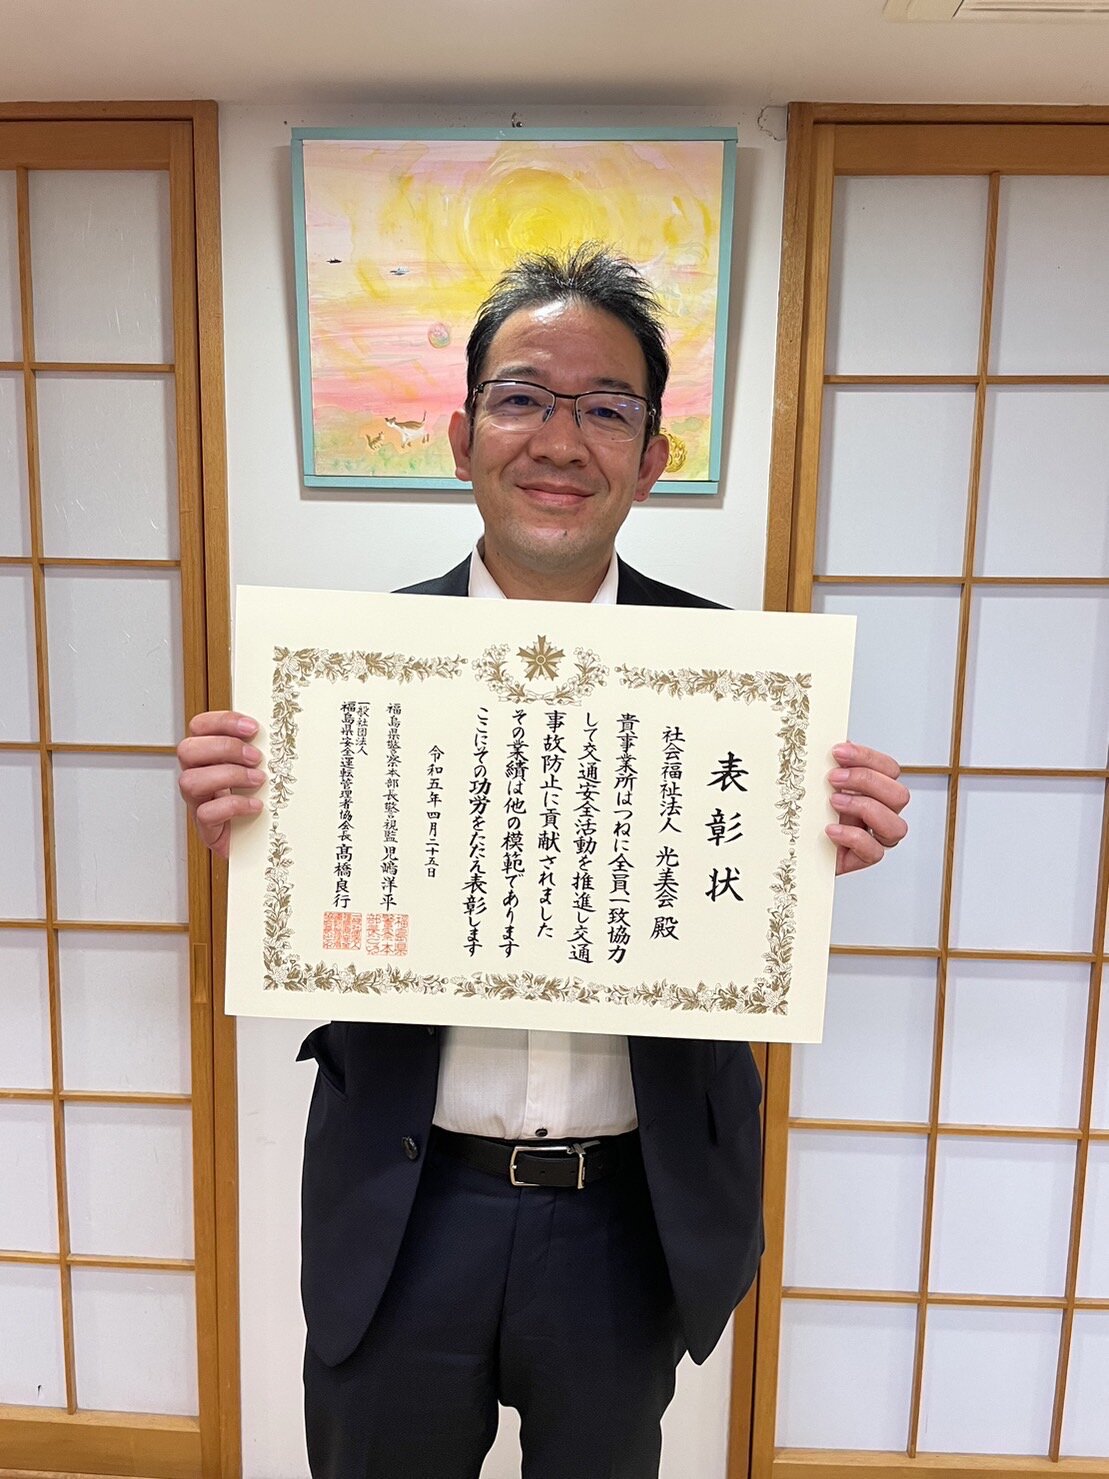 表彰状
社会福祉法人 光美会 殿
貴事業所はつねに全員一致協力
して交通安全活動を推進し交通
事故防止に貢献されました
その業績は他の模範であります
ここにその功労をたたえ表彰します
令和五年四月二十五日
福島県警察本部長警視監 児嶋洋平
一般社団法人
福島県安全運転管理者協会長 髙橋良行